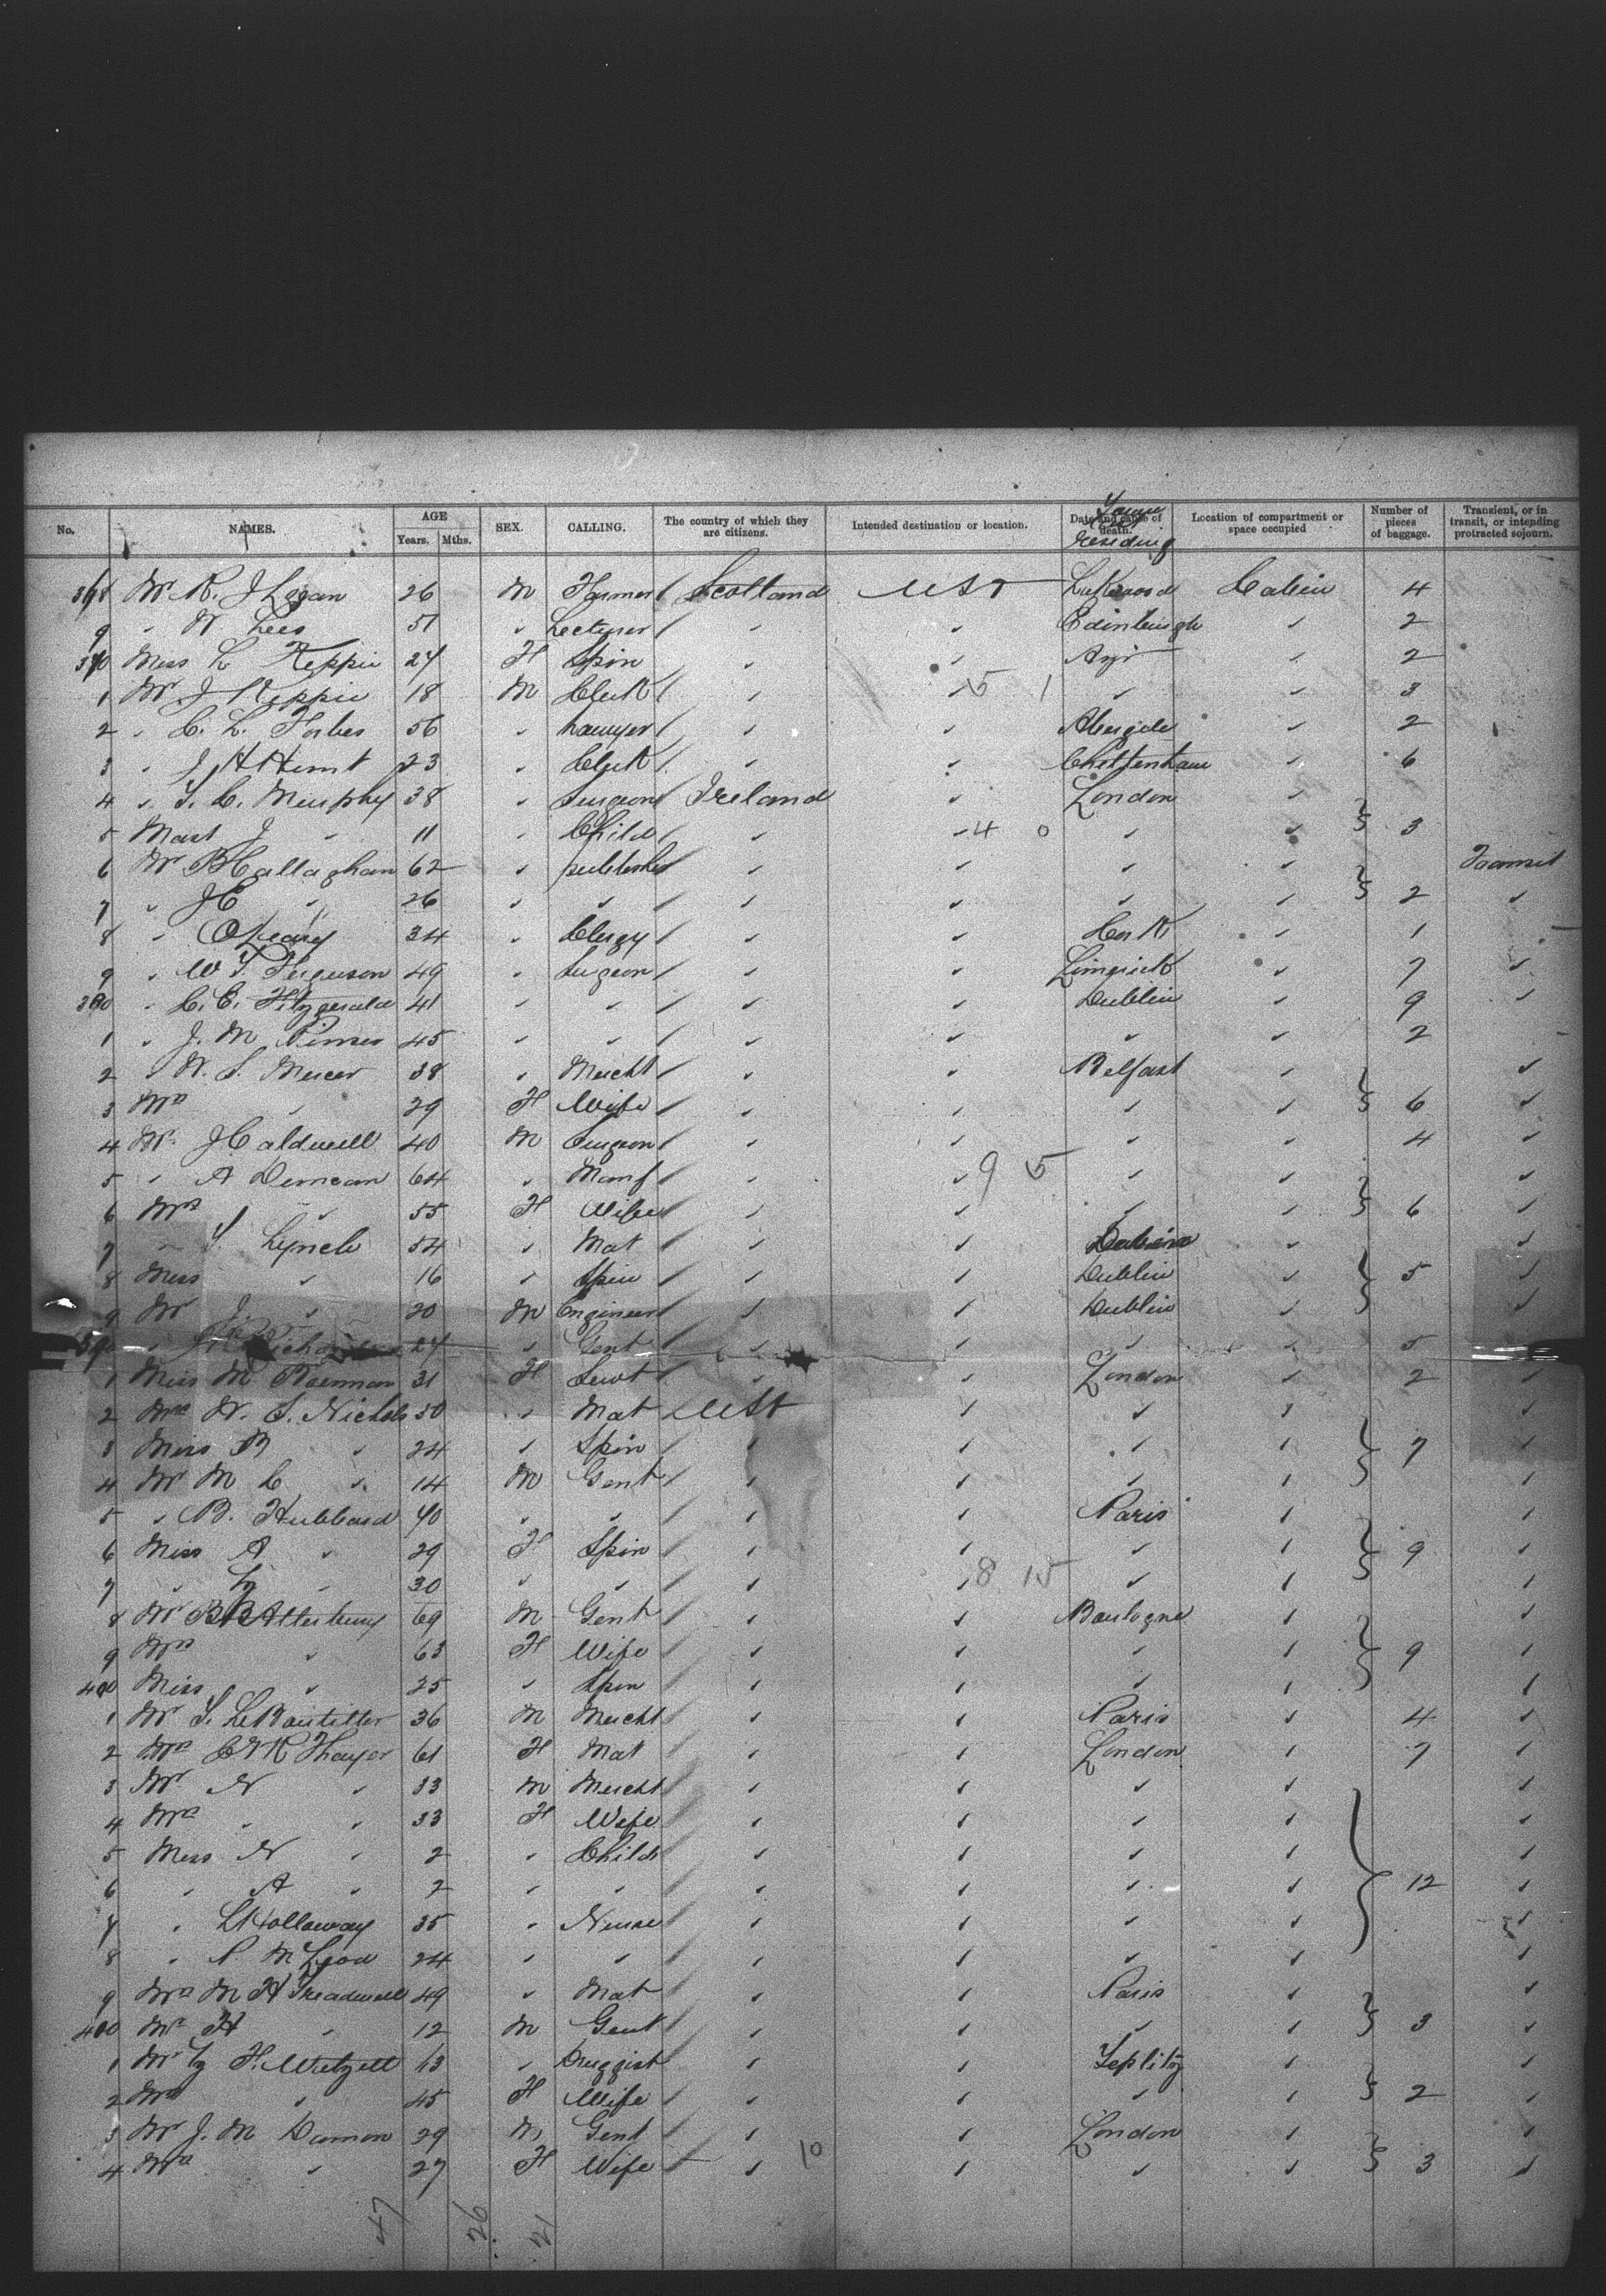 No. NAMES. AGE Years. Mths. SEX. CALLING. The country of which they are citizens. Intended destination or location. Date and cause of death. residing Location of compartment or space occupied Number of pieces of baggage. Transient, or in transit, or intending protracted sojourn.
368 Mr R. J Logan 26 M Farmer Scotland USA Cabin 4
9 " W Lees 51 " Lecturer " " Edinburgh " 2
370 Miss L Keppie 24 F Spin " " Ayr " 2
1 Mr J Keppie 18 M Clerk " " 5 1 " " 3
2 " C. L. Forbes 56 " Lawyer " " " 2
3 " J H Hunt 23 " Clerk " " Cheltenham " 6
4 " T. C. Murphy 38 " Surgeon Ireland " London "
5 Mast J " 11 " Child " " 4 0 " " 3
6 Mr B Callaghan 62 " publisher " " " " Transit
7 " J C " 26 " " " " " " 2 "
8 " O'Leary 34 " Clergy " " Cork " 1 -
9 " W T. Ferguson 49 " Surgeon " " Limerick " 7 "
380 " C. E. Fitzgerald 41 " " " " Dublin " 9 "
1 " J. M 45 " " " " " " 2 -
2 " W. S. Mercer 38 " Mercht " " Belfast " "
3 Mrs " 29 F Wife " " " " 6 "
4 Mr J Caldwell 40 M Surgeon " " " " 4 "
5 " A Duncan 64 " Manf " " 9 5 " " "
6 Mrs " 55 F Wife " " " " 6 "
7 " T. Lynch 54 " Mat " " "  "
8 Miss " 16 " Spin " " Dublin " 5 "
9 Mr J. " 20 M Engineer " " Dublin " "
390 " 24 " Gent " " " " 5 "
1 Miss M 31 F Servt " " London " 2 "
2 Mrs W. S. Nichols 50 " Mat USA " " " "
3 Miss B " 24 " Spin " " " " 7 "
4 Mr M C " 14 M Gent " " " " "
5 " B. Hubbard 40 " " " " Paris " "
6 Miss A " 29 F Spin " " " " 9 "
7 " " 30 " " " " 8 15 " " "
8 Mr Atterbury 69 M Gent " " Boulogne " "
9 Mrs " 63 F Wife " " " " 9 "
400 Miss " 25 " Spin " " " " "
1 Mr T. LeBoutillier 36 M Mercht " " Paris " 4 "
2 Mrs Thayer 61 F Mat " " London " 7 "
3 Mr N " 33 M Mercht " " " " "
4 Mrs " " 33 F Wife " " " " "
5 Miss N " 2 " Child " " " " "
6 " A " 2 " " " " " " 12 "
7 " L Holloway 35 " Nurse " " " " "
8 " McLeod 24 " " " " " " "
9 Mrs M H Treadwell 49 " Mat " " Paris " "
410 Mr H " 12 M Gent " " " " 3 "
1 Mr 63 " Druggist " " Teplitz " "
2 Mrs " 45 F Wife " " " " 2 "
3 Mr J. M Damon 29 M Gent " " London " "
4 Mrs " 27 F Wife " 10 " " " 3 "
47 26 21